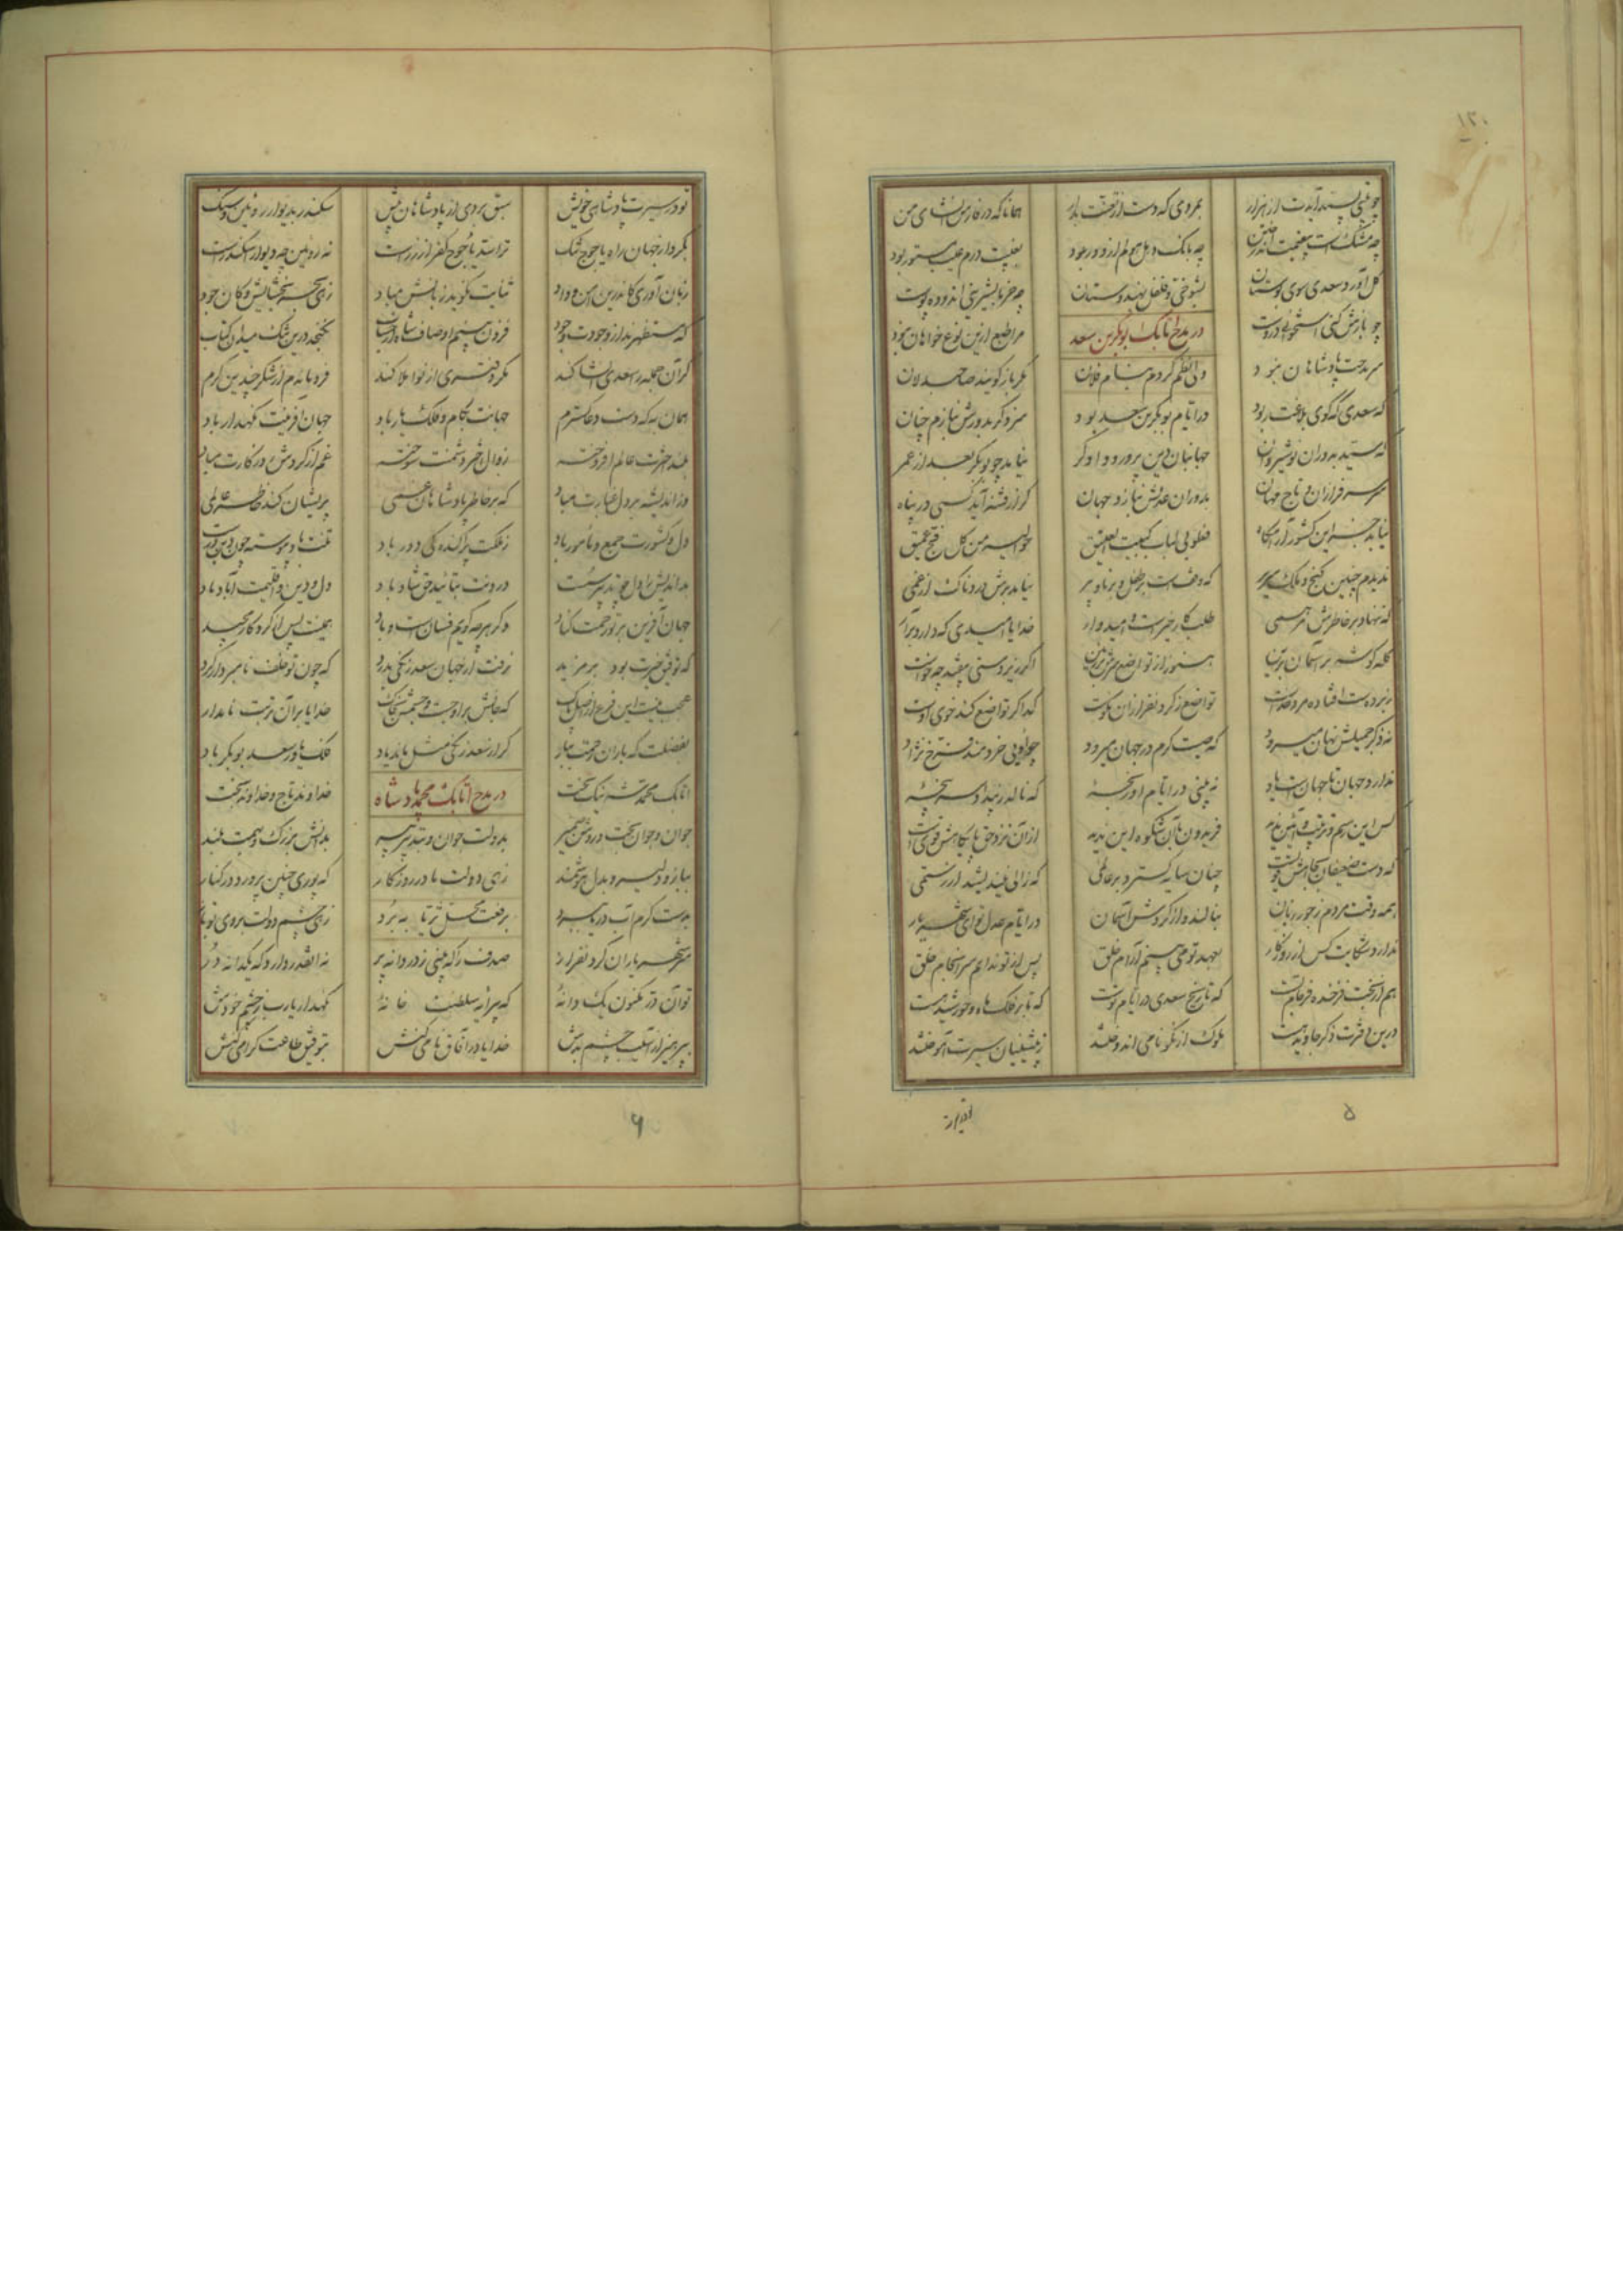 ۱۲۰
چو بیتی پسند آیدت از هزار بمردی که دست از تعنت بدار همانا که در فارس انشای من
چه مشکست بیقیمت اندر ختن چه بانک دهل هولم از دور بود بغیبت درم عیب مستور بود
کل آورد سعدی سوی بوستان بشوخی و فلفل بهندوستان چه خرما بشیرینی اندوده پوست
چو بازش کنی استخوانی دروست در مدح اتابک ابوبکر بن سعد مرا طبع ازین نوع خواهان نبود
سر مدحت پادشاهان نبود ولی نظم کردم بنام فلان مکر باز کویند صاحبدلان
که سعدی که کوی بلاغت ربود در ایام بوبکر بن سعد بود سزد کر بدورش بنازم چنان
که سید بدوران نوشیروان جهانبان دین پرور و دادکر نیامد چو بوبکر بعد از عمر
سر سرفرازان و تاج مهان بدوران عدلش بناز و جهان کر از فتنه آید کسی در پناه
نیابد جز این کشور آرامکاه فطوبی لباب کبیت العتیق حوالیه من کل فج عمیق
ندیدم چنین کنج و ملک و سریر که وقفست بر طفل و برنا و پیر نیامد برش دردناک از غمی
که ننهاد بر خاطرش مرهمی طلبکار خیرست و امیدوار خدایا امیدی که دارد برآر
کله کوشه بر آسمان برین هنوز از تواضع سرش بر زمین اکر زیردستی بیفتد چه خواست
زبردست افتاده مرد خداست تواضع ز کردنفرازان نکوست کدا کر تواضع کند خوی اوست
نه ذکر جمیلش نهان میرود که صیت کرم در جهان میرود چو اویی خردمند فرخ نژاد
ندارد جهان تا جهانست یاد نه بینی در ایام او رنجه که نالد ز بیداد سرپنجه
کس این رسم و ترتیب و آئین ندید فریدون با آن شکوه این ندید از آن نزد حق پایکاهش قویست
که دست ضعیفان بجاهش قویست چنان سایه کسترد بر عالمی که زالی نیندیشد از رستمی
همه وقت مردم ز جور زمان بنالند و از کردش آسمان در ایام عدل تو ای شهریار
ندارد شکایت کس از روزکار بعهد تو می بینم آرام خلق پس از تو ندانم سرانجام خلق
هم از بخت فرخنده فرجام تست که تاریخ سعدی در ایام تست که تا بر فلک ماه و خورشید هست
درین دفترت ذکر جاوید هست ملوک ار نکونامی اندوختند ز پیشینیان سیرت آموختند
۵
تو در سیرت پادشاهی خویش سبق بردی از پادشاهان پیش سکندر بدیوار رویین و سنک
بکرد از جهان راه یاجوج تنک ترا سد یاجوج کفر از زرست نه رویین چو دیوار اسکندرست
زبان آوری کاندرین امن و داد ثنایت نکوید زبانش مباد زهی بحر بخشایش و کان جود
که مستظهرند از وجودت وجود فزون بینم اوصاف شاه از حساب نکنجد درین تنک میدان کتاب
کر آن جمله را سعدی انشا کند مکر دفتری از نو املا کند فرو ماندم از شکر چندین کرم
همان به که دست دعا کسترم جهانت بکام و فلک یار باد جهان آفرینت نکهدار باد
بلند اخترت عالم افروخته زوال اختر دشمنت سوخته غم از کردش روزکارت مباد
وز اندیشه بر دل غبارت مباد که بر خاطر پادشاهان غمی پریشان کند خاطر عالمی
دل و کشورت جمع و معمور باد ز ملکت پراکندکی دور باد تنت باد پیوسته چون دین درست
بداندیش را دل چو تدبیر سست درونت بتائید حق شاد باد دل و دین و اقلیمت آباد باد
جهان آفرین بر تو رحمت کناد دکر هر چه کویم فسانست و باد همینت بس از کردکار مجید
که توفیق خیرت بود بر مزید نرفت از جهان سعد زنکی بدرد که چون تو خلف نامبردار کرد
عجب نیست این فرع از اصل پاک که جانش بر اوجست و جسمش بخاک خدایا بر آن تربت نامدار
بفضلت که باران رحمت ببار کر از سعد زنکی مثل ماند یاد فلک یاور سعد بوبکر باد
اتابک محمد شه نیک بخت در مدح اتابک محمد پادشاه خداوند تاج و خداوند بخت
جوان و جوان بخت و روشن ضمیر بدولت جوان و بتدبیر پیر بدانش بزرک و بهمت بلند
ببازو دلیر و بدل هوشمند زهی دولت مادر روزکار که پوری چنین پرورد در کنار
بدست کرم آب دریا ببرد برفعت محل ثریا ببرد زهی چشم دولت بروی تو باز
سر شهریاران کردنفراز صدف را که بینی ز دردانه پر نه آنقدر دارد که یکدانه در
تو آن در مکنون یک دانهٔ که پیرایه سلطنت خانهٔ نکهدار یارب ز چشم خودش
بپرهیز از آسیب چشم بدش خدایا در آفاق نامی کنش بتوفیق طاعت کرامی کنش
۶